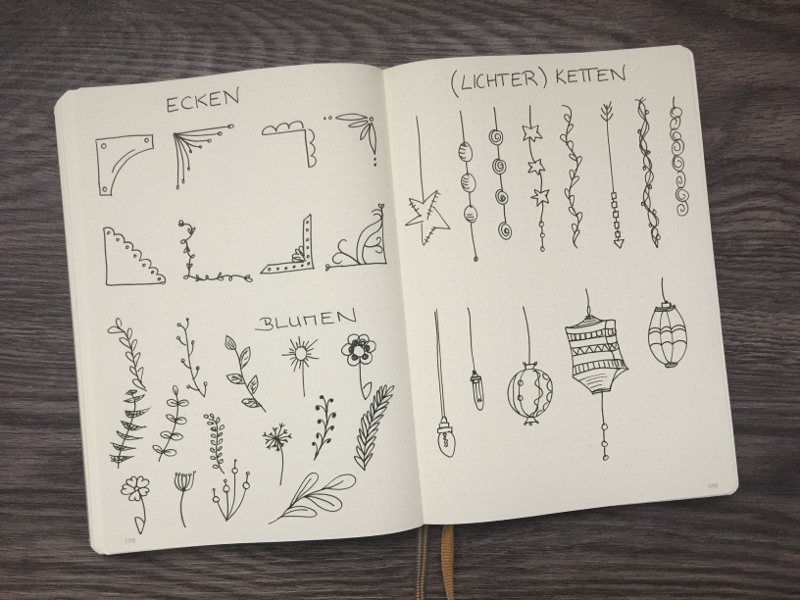 ECKEN
BLUMEN
(LICHTER) KETTEN